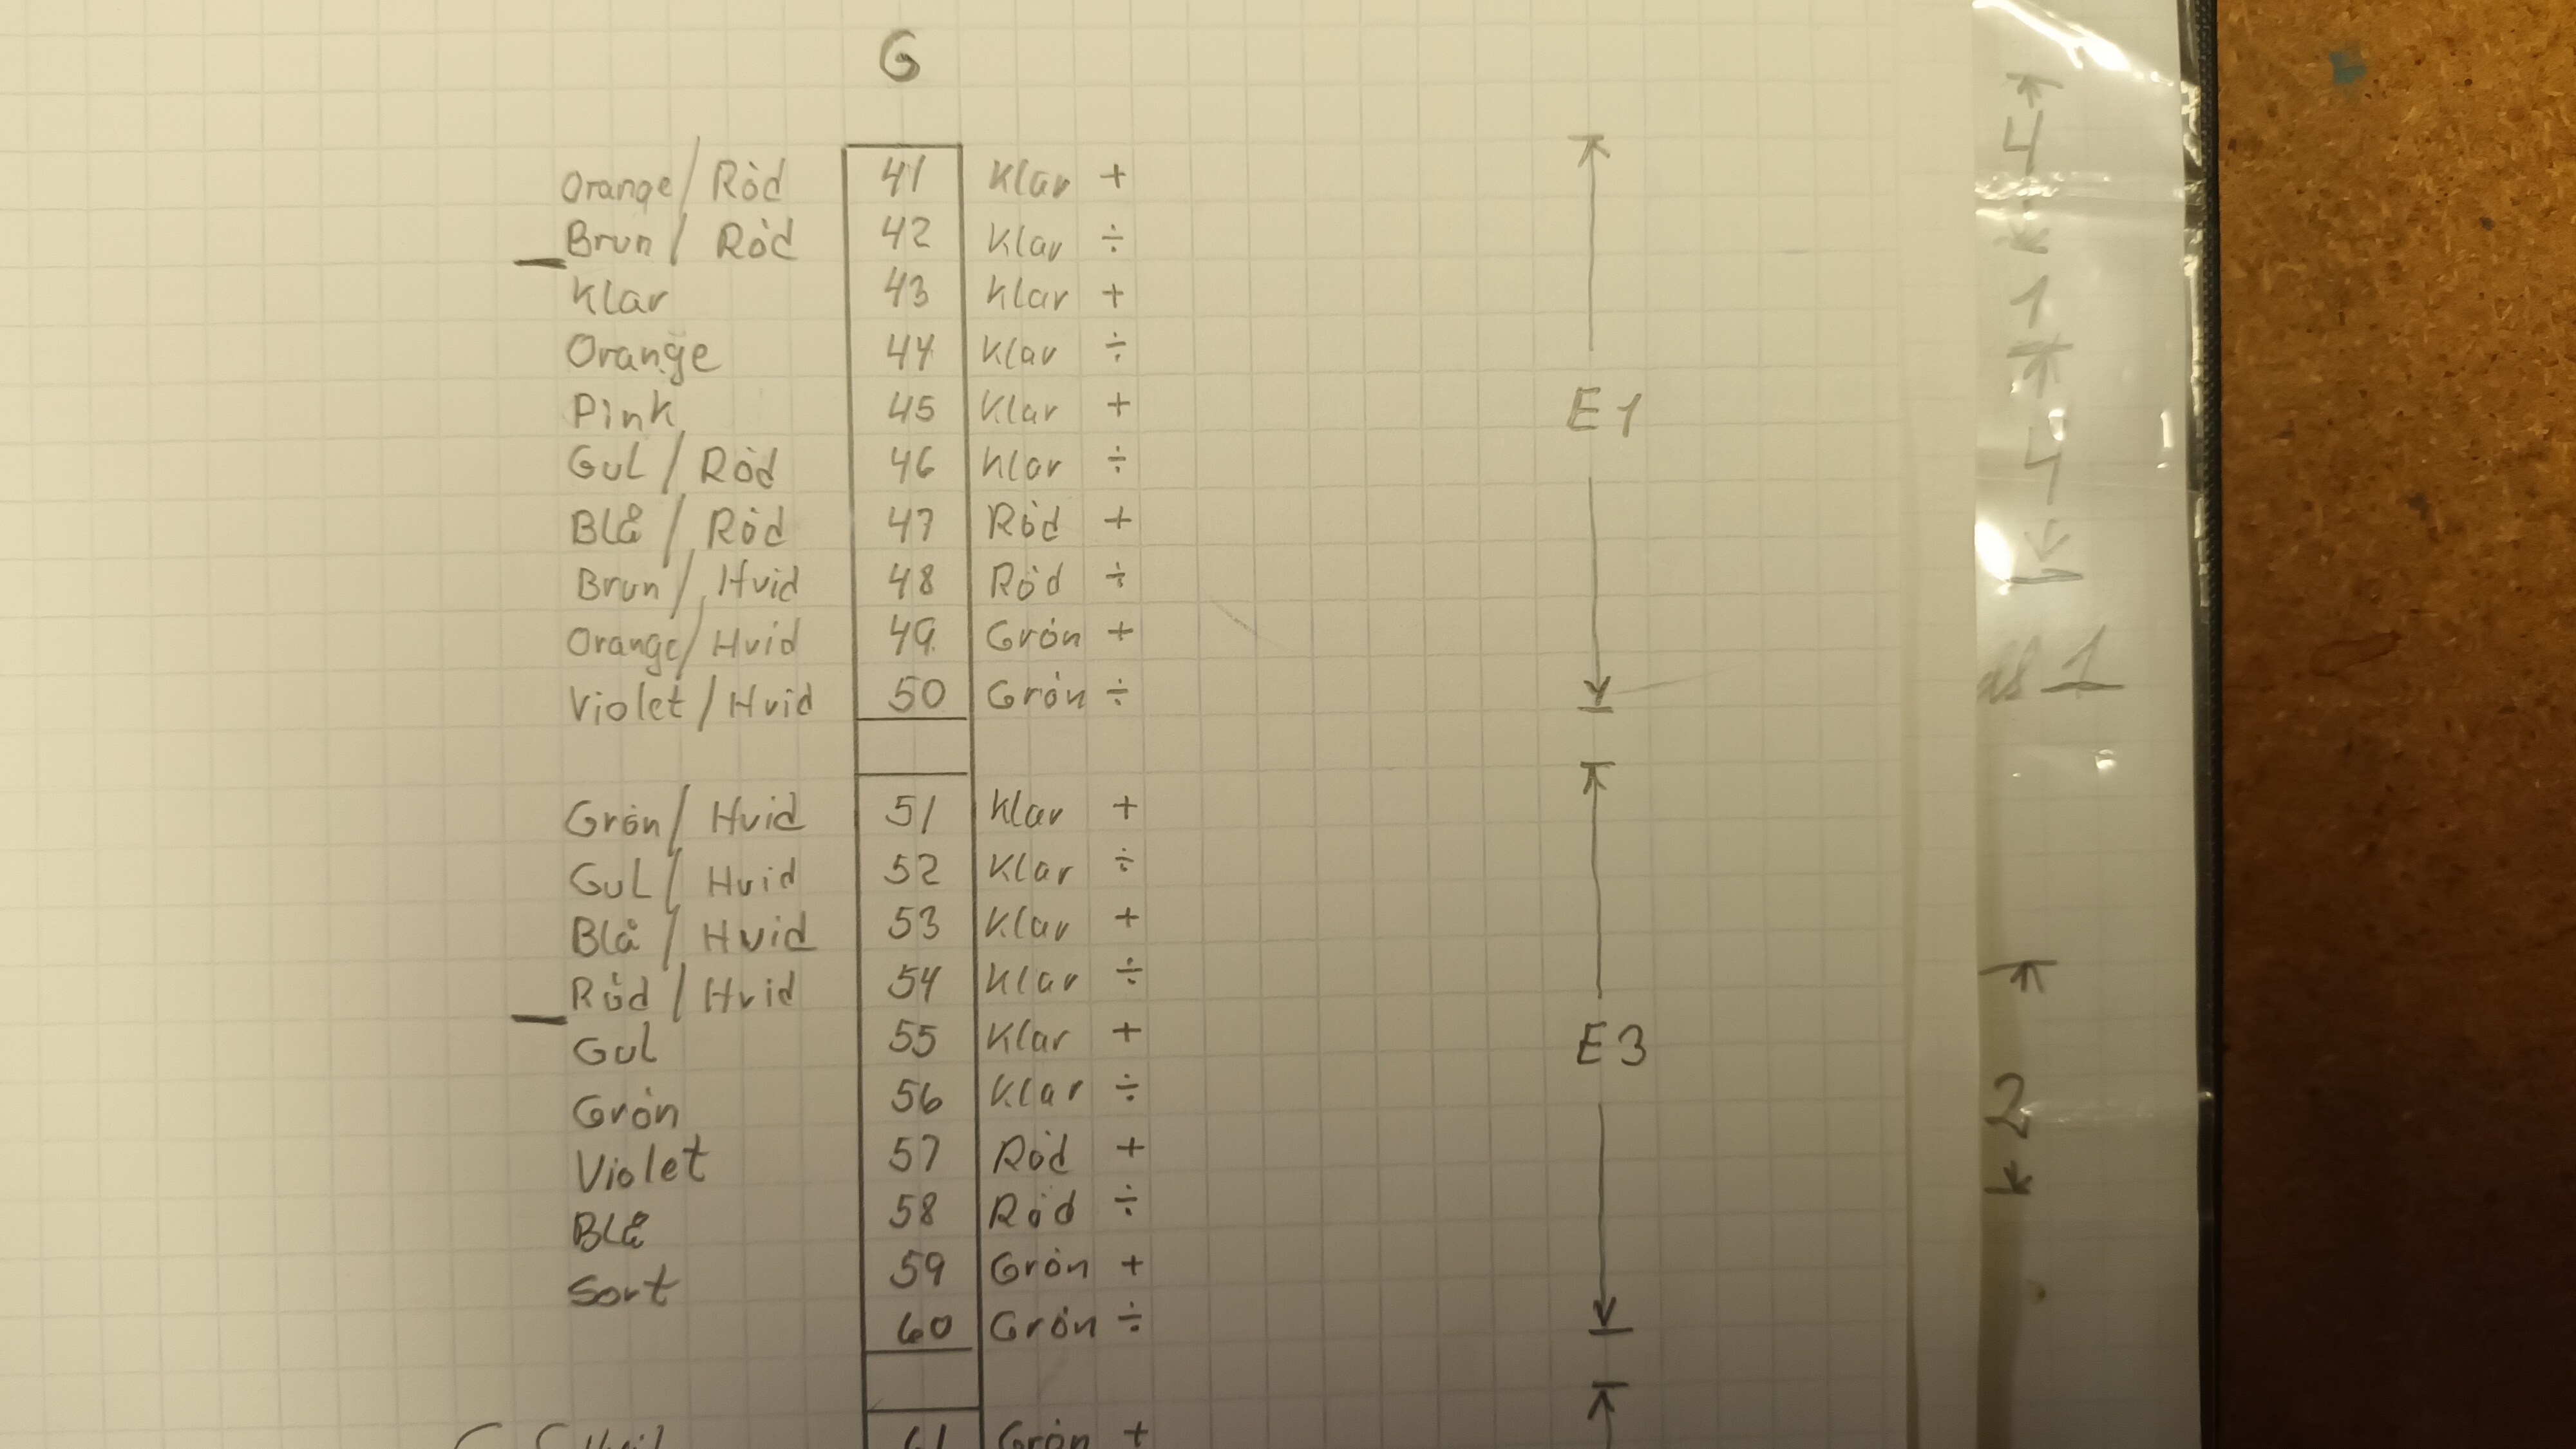 G
Orange / Röd 41 Klar +
Brun / Röd 42 Klar ÷
Klar 43 Klar +
Orange 44 Klar ÷
Pink 45 Klar +
Gul / Röd 46 Klar ÷
Blå / Röd 47 Röd +
Brun / Hvid 48 Röd ÷
Orange / Hvid 49 Grön +
Violet / Hvid 50 Grön ÷
E1
Grön / Hvid 51 Klar +
Gul / Hvid 52 Klar ÷
Blå / Hvid 53 Klar +
Röd / Hvid 54 Klar ÷
Gul 55 Klar +
Grön 56 Klar ÷
Violet 57 Röd +
Blå 58 Röd ÷
Sort 59 Grön +
60 Grön ÷
E3
61 Grön +
4
1
1
2